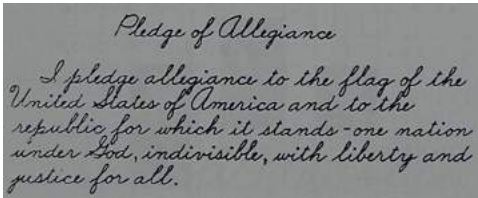 Pledge of Allegiance
I pledge allegiance to the flag of the
United States of America and to the
republic for which it stands - one nation
under God, indivisible, with liberty and
justice for all.